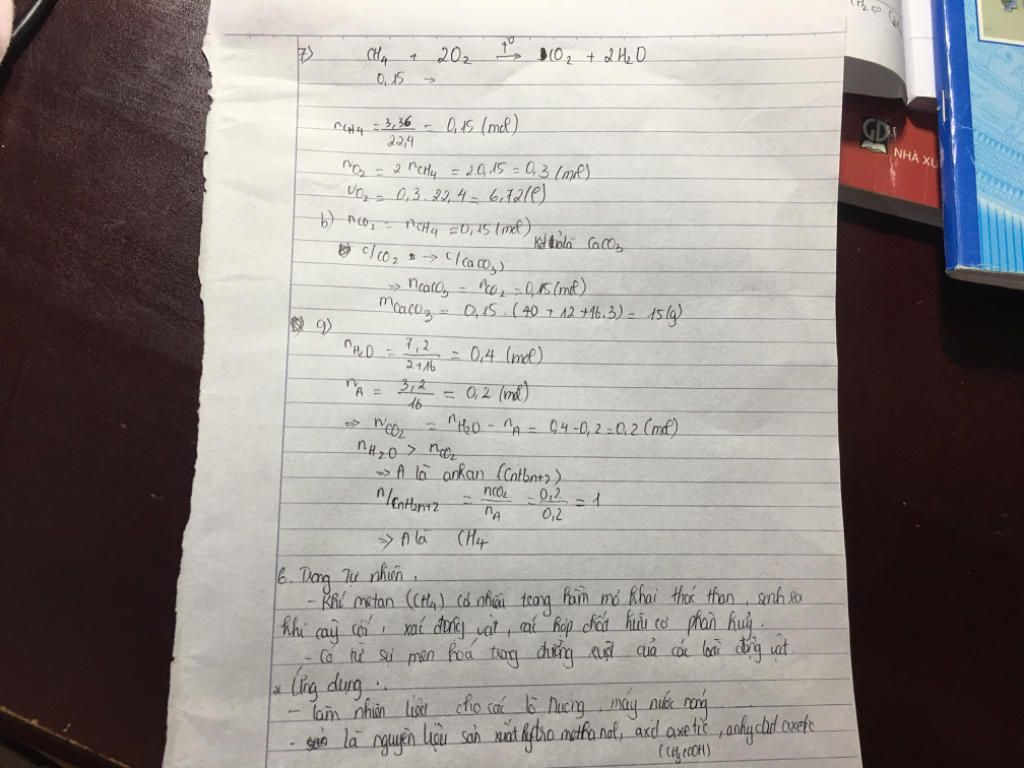 7) CH4 + 2O2 →t° CO2 + 2H2O
0,15 →
nCH4 = 3,36/22,4 = 0,15 (mol)
nO2 = 2 nCH4 = 2.0,15 = 0,3 (mol)
VO2 = 0,3 . 22,4 = 6,72 (l)
b) nCO2 = nCH4 = 0,15 (mol)
Kết tủa là CaCO3
C/CO2 → C/CaCO3
⇒ nCaCO3 = nCO2 = 0,15 (mol)
mCaCO3 = 0,15 . (40 + 12 + 16.3) = 15 (g)
9)
nH2O = 7,2/2+16 = 0,4 (mol)
nA = 3,2/16 = 0,2 (mol)
⇒ nCO2 = nH2O - nA = 0,4 - 0,2 = 0,2 (mol)
nH2O > nCO2
⇒ A là ankan (CnH2n+2)
n/CnH2n+2 = nCO2/nA = 0,2/0,2 = 1
⇒ A là CH4
6. Trong Tự nhiên.
- Khí metan (CH4) có nhiều trong hầm mỏ khai thác than, sinh ra
khi cây cối, xác động vật, các hợp chất hữu cơ phân huỷ.
- Có từ sự men hoá trong đường ruột của các loài động vật.
* Ứng dụng:
- làm nhiên liệu cho các lò nướng, máy nước nóng
- là nguyên liệu sản xuất hydro methanol, axid axetic, anhydrid axetic
(CH3COOH)
GD
NHÀ XU